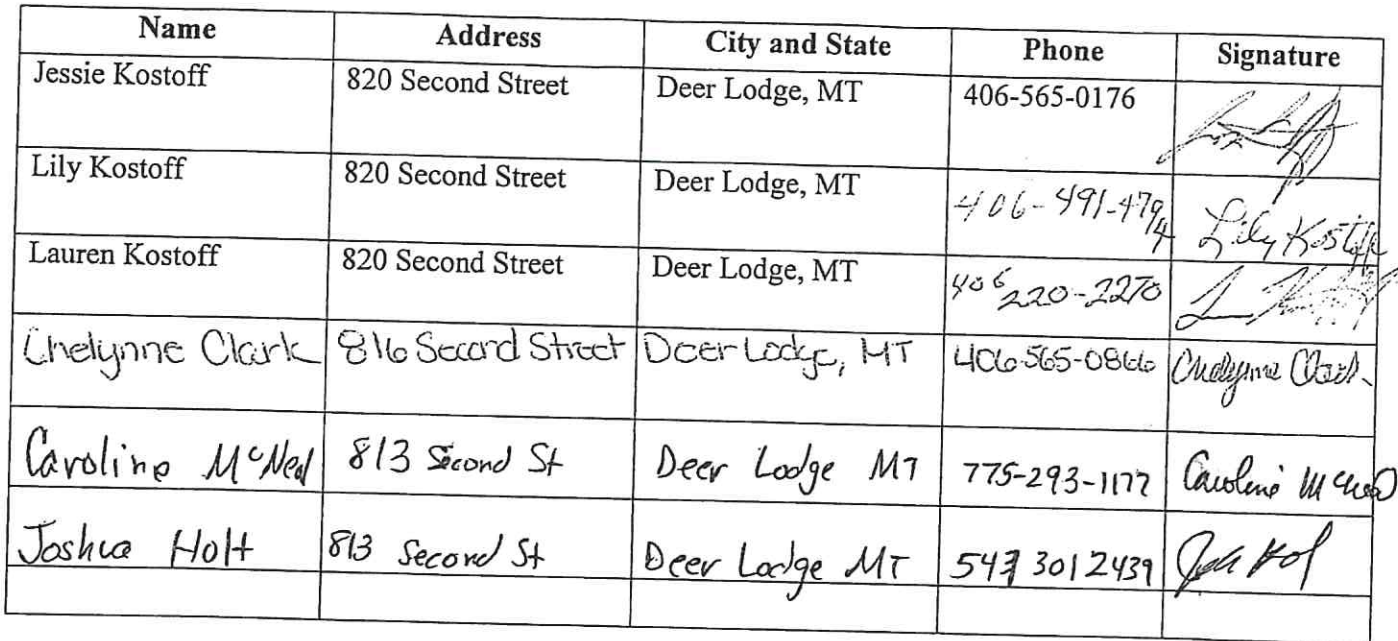 Name Address City and State Phone Signature
Jessie Kostoff 820 Second Street Deer Lodge, MT 406-565-0176
Lily Kostoff 820 Second Street Deer Lodge, MT 406-491-4794 Lily Kostoff
Lauren Kostoff 820 Second Street Deer Lodge, MT 406 220-2270
Chelynne Clark 816 Second Street Deer Lodge, MT 406-565-0866 Chelynne Clark
Caroline McNeal 813 Second St Deer Lodge MT 775-293-1177 Caroline McNeal
Joshua Holt 813 Second St Deer Lodge MT 3012439